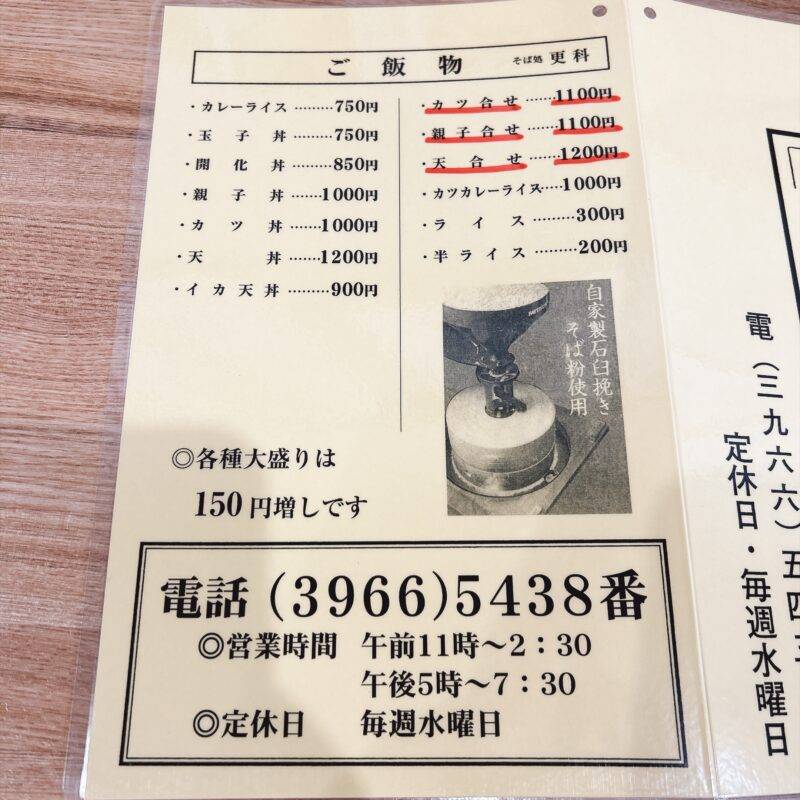 ご飯物 そば処 更科
・カレーライス………750円
・玉子丼………750円
・開化丼………850円
・親子丼………1000円
・カツ丼………1000円
・天丼………1200円
・イカ天丼………900円
・カツ合せ………1100円
・親子合せ………1100円
・天合せ………1200円
・カツカレーライス……1000円
・ライス………300円
・半ライス………200円
自家製石臼挽き
そば粉使用
◎各種大盛りは
150円増しです
電話(3966)5438番
◎営業時間 午前11時〜2:30
午後5時〜7:30
◎定休日 毎週水曜日
電(三九六六)五四三
定休日・毎週水曜日